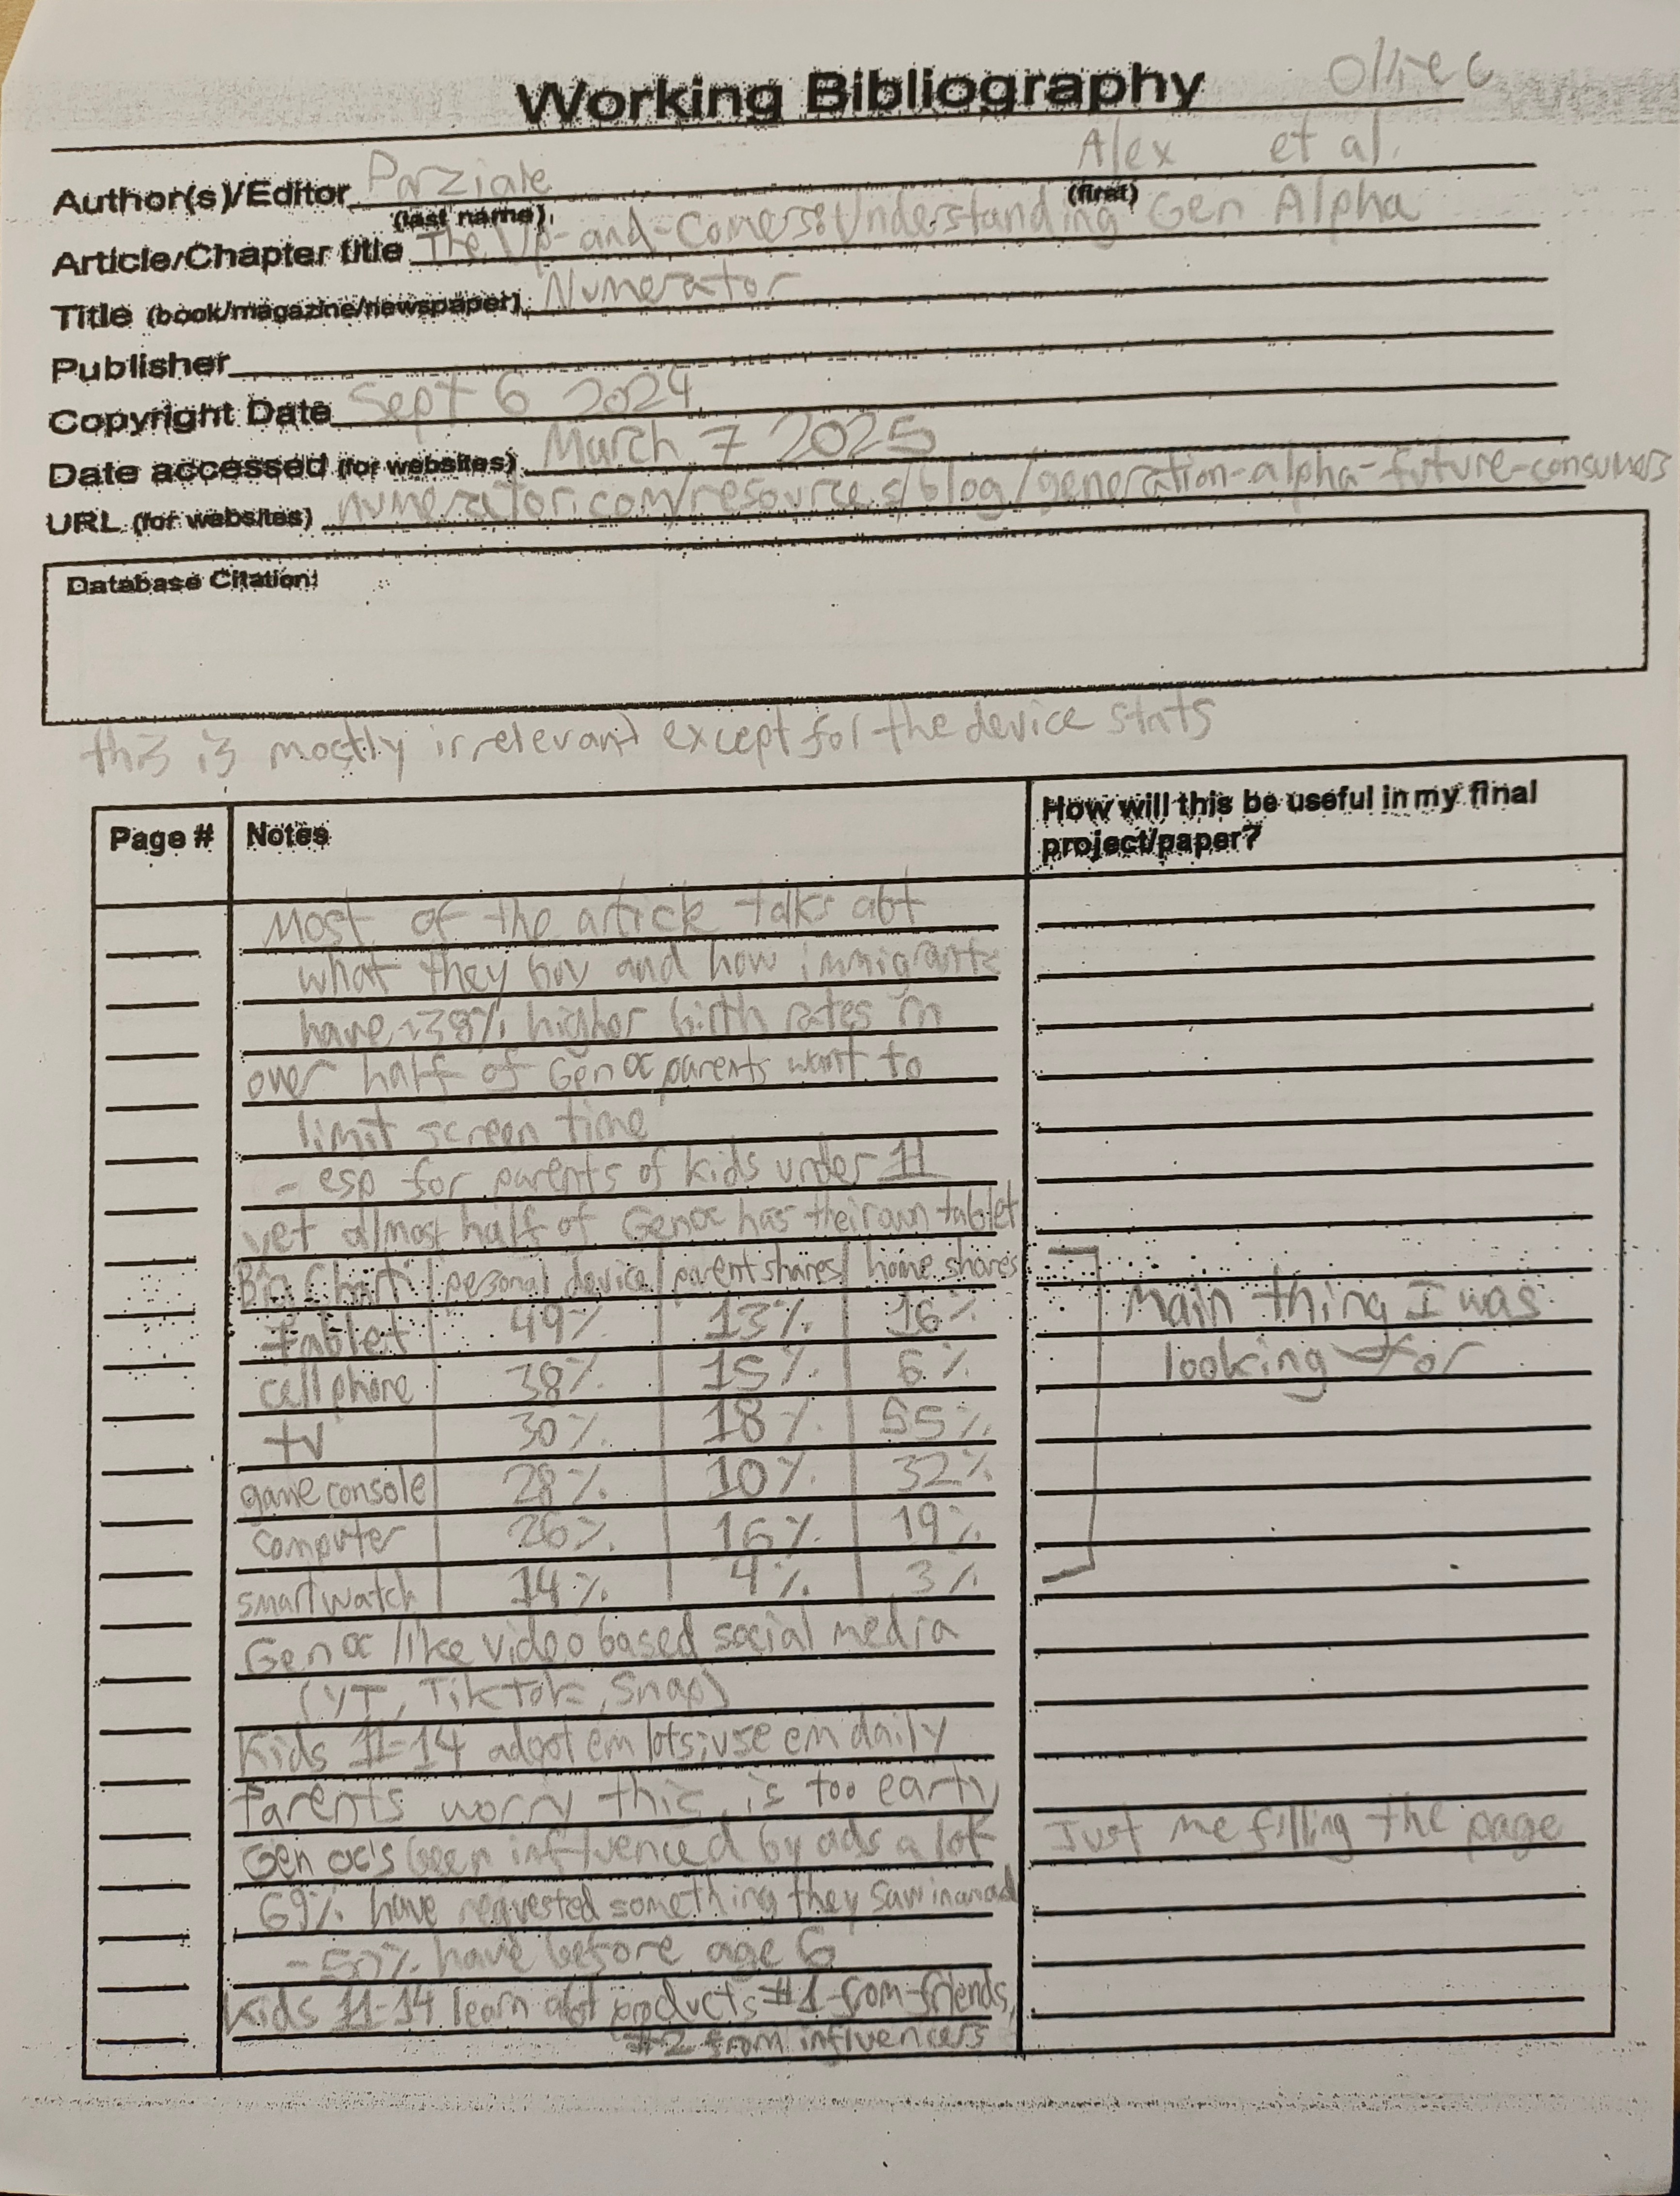 Working Bibliography
Author(s)/Editor Parziale Alex et al.
(last name) (first)
Article/Chapter title The Up-and-Comers: Understanding Gen Alpha
Title (book/magazine/newspaper) Numerator
Publisher
Copyright Date Sept 6 2024
Date accessed (for websites) March 7 2025
URL (for websites) numerator.com/resources/blog/generation-alpha-future-consumers
Database Citation:
this is mostly irrelevant except for the device stats
Page # Notes How will this be useful in my final
project/paper?
Most of the article talks abt
what they buy and how immigrants
have ~38% higher birth rates
over half of Gen α parents want to
limit screen time
- esp for parents of kids under 11
yet almost half of Gen α has their own tablet
Big Chart personal device parent shares home shares
tablet 49% 13% 16% Main thing I was
cellphone 38% 15% 6% looking for
tv 30% 18% 55%
game console 28% 10% 32%
computer 26% 16% 19%
smartwatch 14% 4% 3%
Gen α like video based social media
(YT, TikTok, Snap)
Kids 11-14 adopt em lots; use em daily
Parents worry this is too early
Gen α's been influenced by ads a lot Just me filling the page
69% have requested something they saw in an ad
- 50% have before age 6
kids 11-14 learn abt products #1 from friends,
#2 from influencers